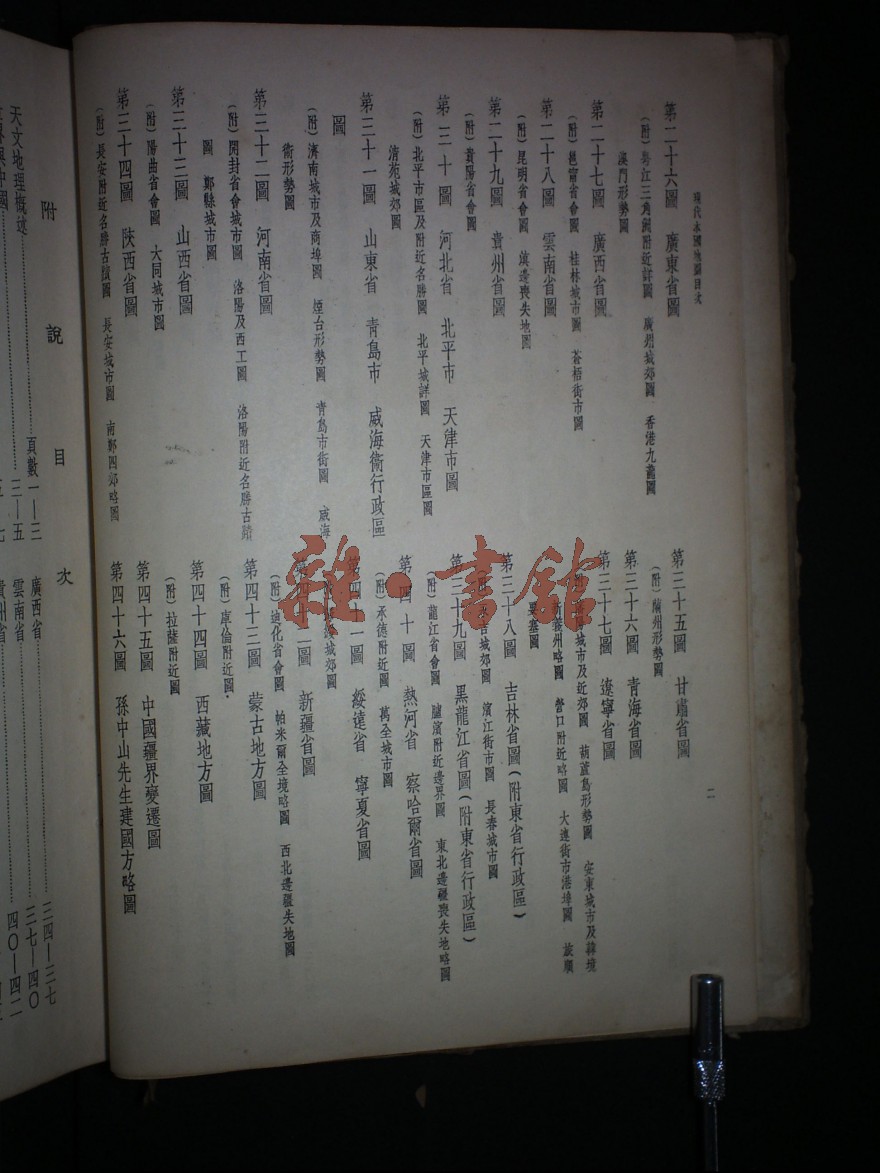 現代本國地圖目次
第二十六圖 廣東省圖
(附)粵江三角洲附近詳圖 廣州城郊圖 香港九龍圖
澳門形勢圖
第二十七圖 廣西省圖
(附)邕寧省會圖 桂林城市圖 蒼梧街市圖
第二十八圖 雲南省圖
(附)昆明省會圖 滇邊喪失地圖
第二十九圖 貴州省圖
(附)貴陽省會圖
第三十圖 河北省 北平市 天津市圖
(附)北平市區及附近名勝圖 北平城詳圖 天津市區圖
清苑城郊圖
第三十一圖 山東省 青島市 威海衞行政區
圖
(附)濟南城市及商埠圖 煙台形勢圖 青島市街圖 威海
衞形勢圖
第三十二圖 河南省圖
(附)開封省會城市圖 洛陽及西工圖 洛陽附近名勝古蹟
圖 鄭縣城市圖
第三十三圖 山西省圖
(附)陽曲省會圖 大同城市圖
第三十四圖 陝西省圖
(附)長安附近名勝古蹟圖 長安城市圖 南鄭四郊略圖
第三十五圖 甘肅省圖
(附)蘭州形勢圖
第三十六圖 青海省圖
第三十七圖 遼寧省圖
城市及近郊圖 葫蘆島形勢圖 安東城市及韓境
新義州略圖 營口附近略圖 大連街市港埠圖 旅順
要塞圖
第三十八圖 吉林省圖(附東省行政區)
城郊圖 濱江街市圖 長春城市圖
第三十九圖 黑龍江省圖(附東省行政區)
(附)龍江省會圖 臚濱附近邊界圖 東北邊疆喪失地略圖
第四十圖 熱河省 察哈爾省圖
(附)承德附近圖 萬全城市圖
第四十一圖 綏遠省 寧夏省圖
城郊圖
第四十二圖 新疆省圖
(附)迪化省會圖 帕米爾全境略圖 西北邊疆失地圖
第四十三圖 蒙古地方圖
(附)庫倫附近圖
第四十四圖 西藏地方圖
(附)拉薩附近圖
第四十五圖 中國疆界變遷圖
第四十六圖 孫中山先生建國方略圖
二
雜·書館
附說目次
天文地理概述 頁數一—三
三—五
廣西省 三四—三七
雲南省 三七—四〇
貴州省 四〇—四二